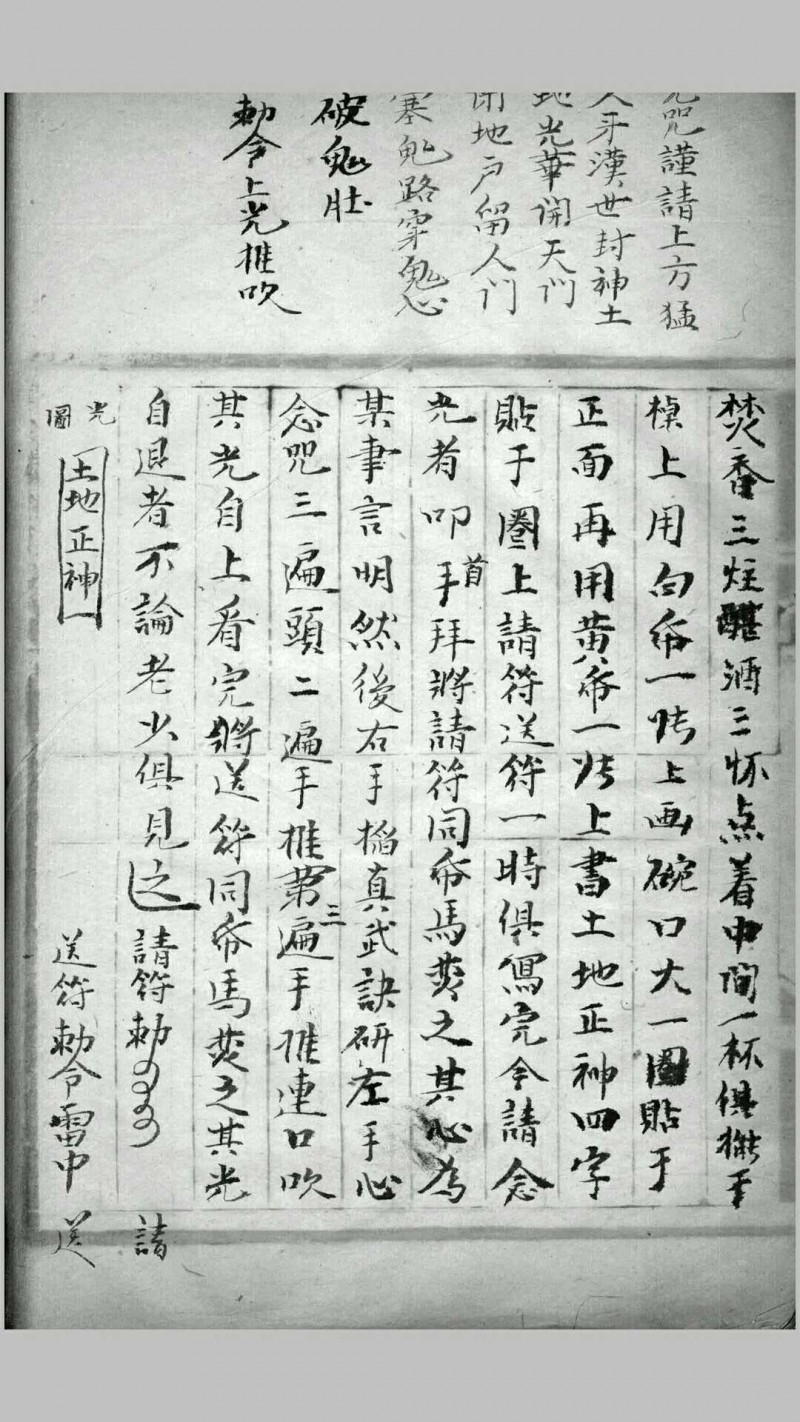 咒謹請上方猛
牙漢世封神土
光華開天門
閉地戶留人門
塞鬼路穿鬼心
破鬼肚
勅令上光推吹
焚香三炷醮酒三怀点着中间一杯俱擺于
棹上用白帋一張上画碗口大一圈貼于
正面再用黃帋一張上書土地正神四字
貼于圈上請符送符一時俱寫完令請念
光者叩手首拜將請符同帋馬焚之其心為
某事言明然後右手掐真武訣研左手心
念咒三遍頭二遍手推第三遍手推連口吹
其光自上看完將送符同帋馬焚之其光
自退者不論老少俱見之
請符勅
請
光圖
土地正神
送符勅令雷中
送